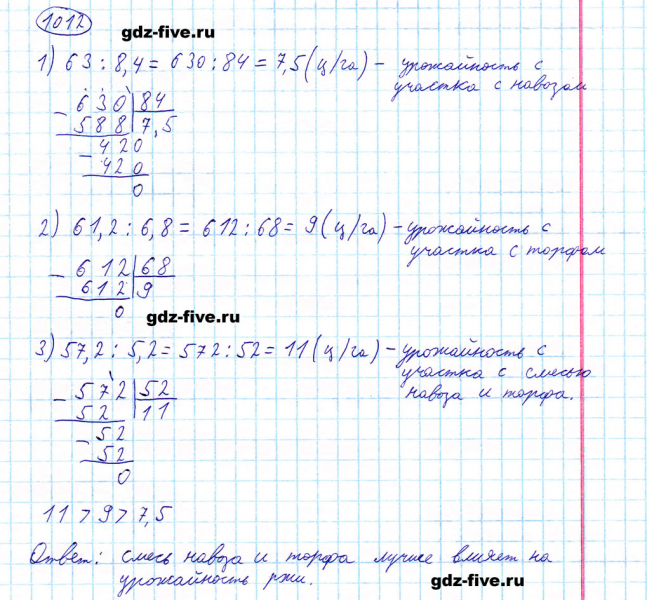 1012
gdz-five.ru
1) 63 : 8,4 = 630 : 84 = 7,5 (ц/га) – урожайность с
участка с навозом
− 630 | 84
588 | 7,5
− 420
420
0
2) 61,2 : 6,8 = 612 : 68 = 9 (ц/га) – урожайность с
участка с торфом
− 612 | 68
612 | 9
0
gdz-five.ru
3) 57,2 : 5,2 = 572 : 52 = 11 (ц/га) – урожайность с
участка с смесью
навоза и торфа.
− 572 | 52
52 | 11
− 52
52
0
11 > 9 > 7,5
Ответ: смесь навоза и торфа лучше влияет на
урожайность ржи.
gdz-five.ru